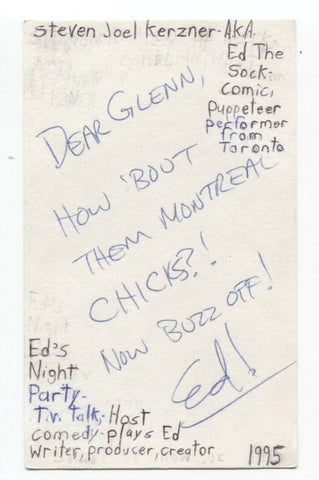 Steven Joel Kerzner-AKA
Ed The
Sock-
comic,
Puppeteer
performer
from
Toronto
DEAR GLENN,
HOW 'BOUT
THEM MONTREAL
CHICKS?!
NOW BUZZ OFF!
Ed!
Ed's
Night
Party-
T.V. Talk, Host
comedy-plays Ed
writer, producer, creator
1995